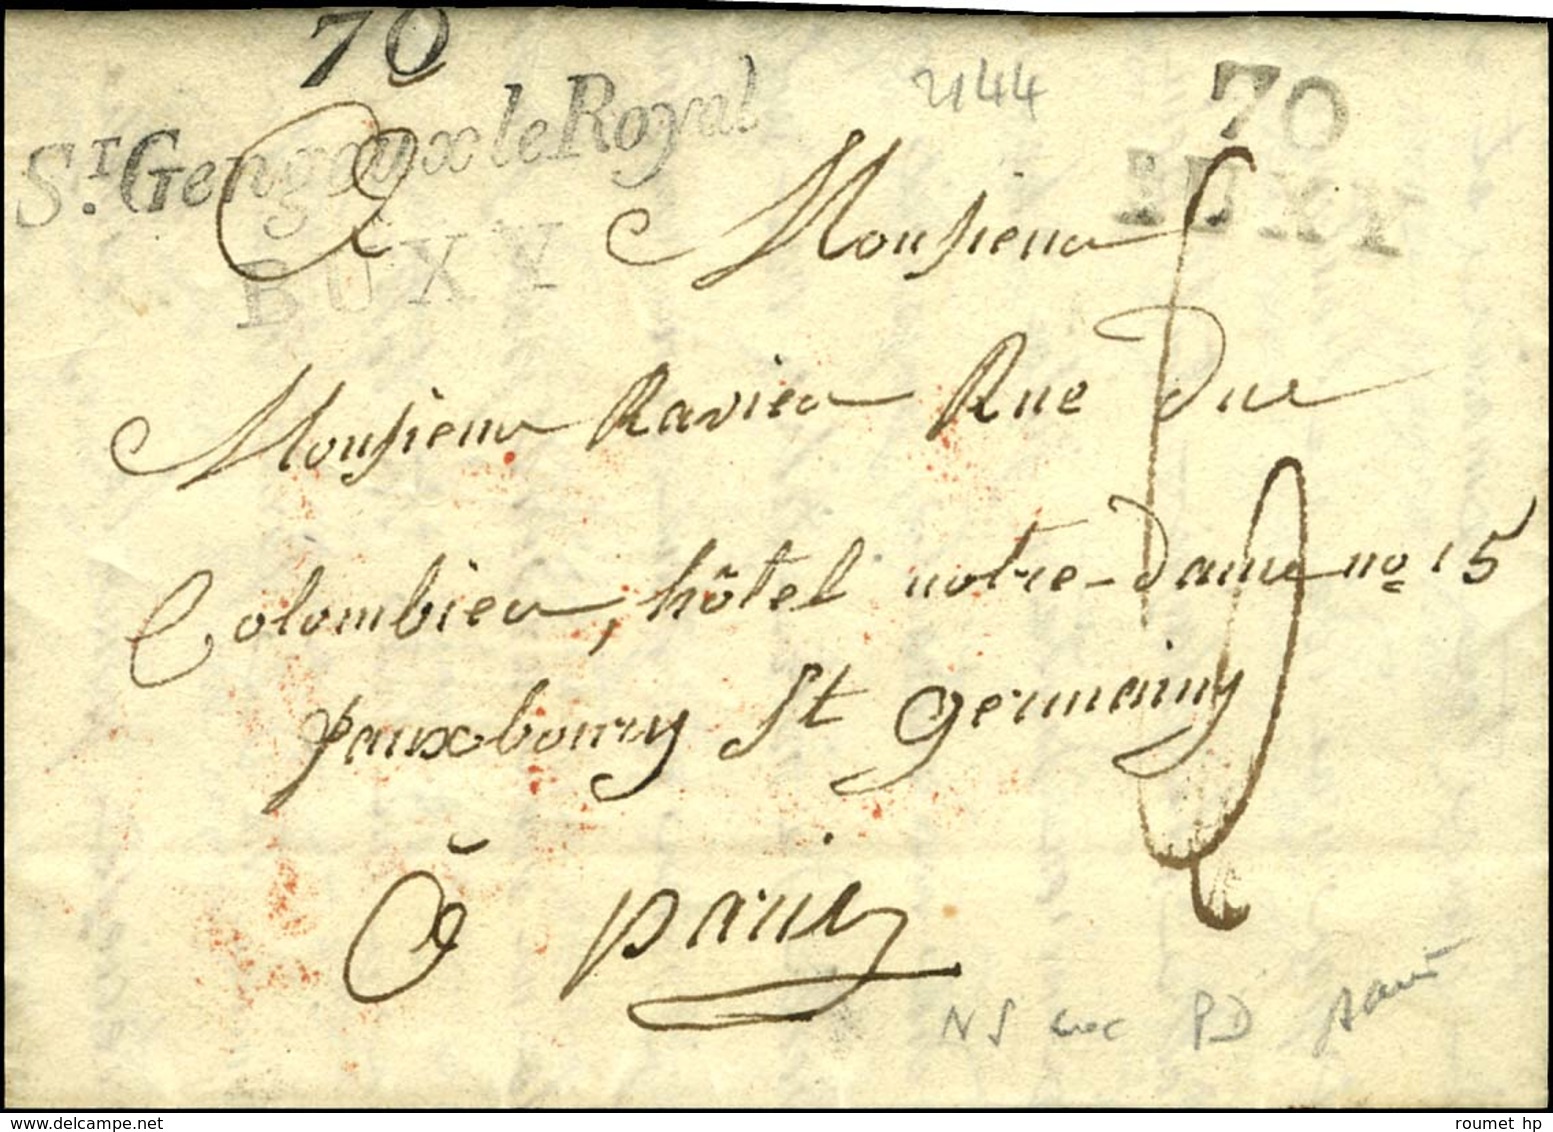 70
St. Gengoux le Royal
BUXY
2144
70
BUXY
A Monsieur
Monsieur Ravier Rue Du
Colombier, hôtel notre-Dame no 15
fauxbourg St germaing
à paris
NS PD
© roumet hp